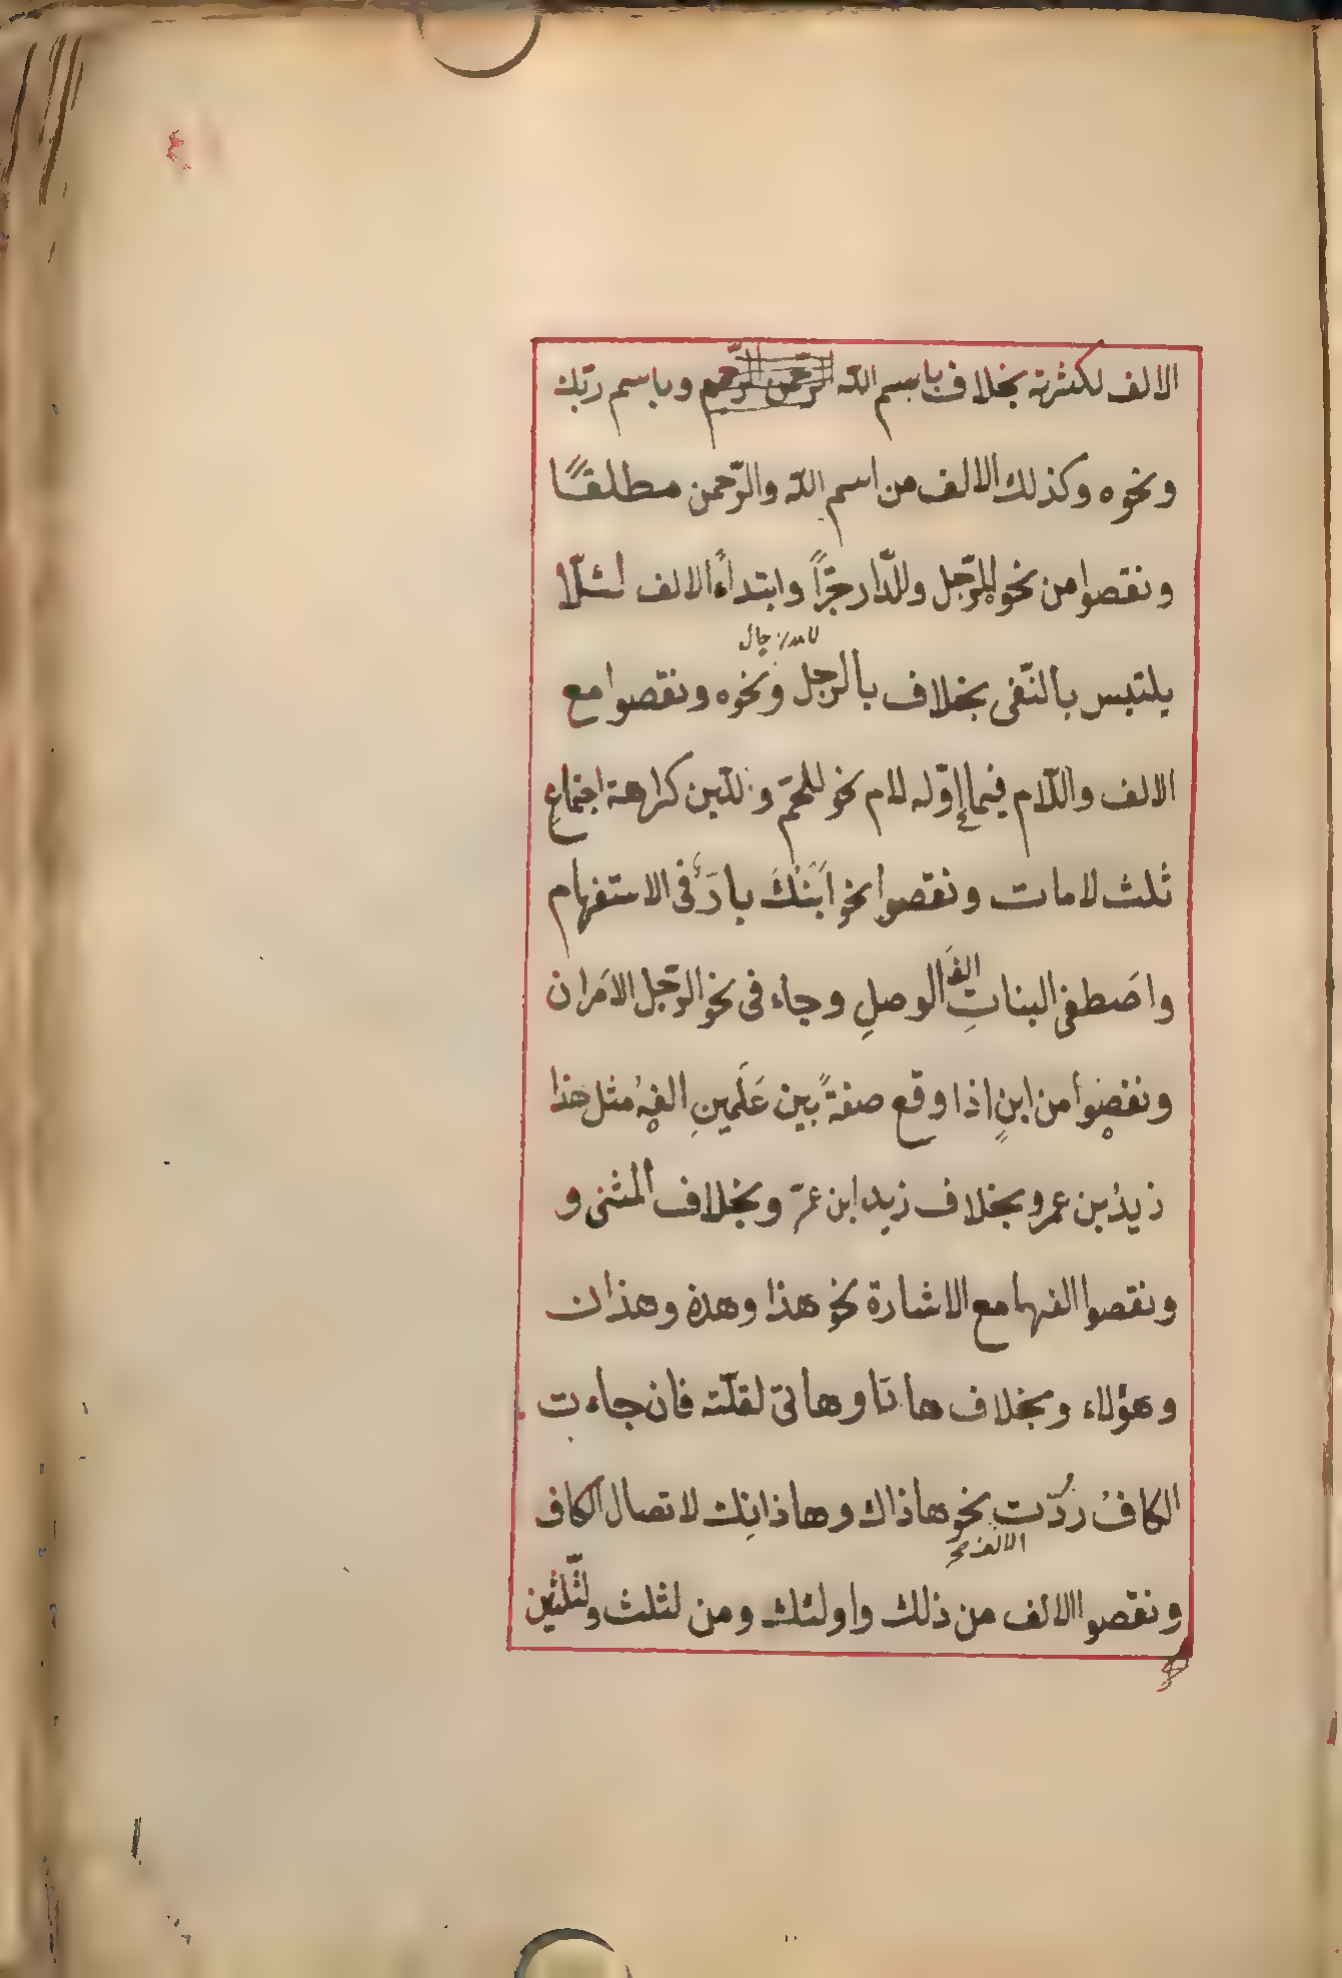 الالف لكثرته بخلاف باسم اللّه الرّحمن الرّحيم وباسم ربّك
ونحوه وكذلك الالف من اسم اللّه والرّحمن مطلقًا
ونقصوا من نحو للرّجل وللّدار جرّاً وابتداءً الالف لئلّا
يلتبس بالنّفى بخلاف بالرجل ونحوه ونقصوا مع
الالف واللّام فيما اوّله لام نحو للحم وللّبن كراهة اجتماع
ثلث لامات ونقصوا نحو اَبنُكَ بارّ فى الاستفهام
واصَطفى البناتِ الفَ الوصلِ وجاء فى نحو الرّجل الامَران
ونقصوا من ابنٍ اذا وقع صفةً بين عَلَمينِ الفهُ مثل هذا
زيدُ بن عمرو بخلاف زيد ابن عمرو وبخلاف المثنى و
ونقصوا الف ها مع الاشارة نحو هذا وهذه وهذان
وهؤلاء وبخلاف هاتا وهاتى لقلّته فان جاءت
الكافُ ردّت نحو هاذاك وهاذانك لاتصال الكاف
الالف
ونقصوا الالف من ذلك واولئك ومن لثلث ولثّلثين